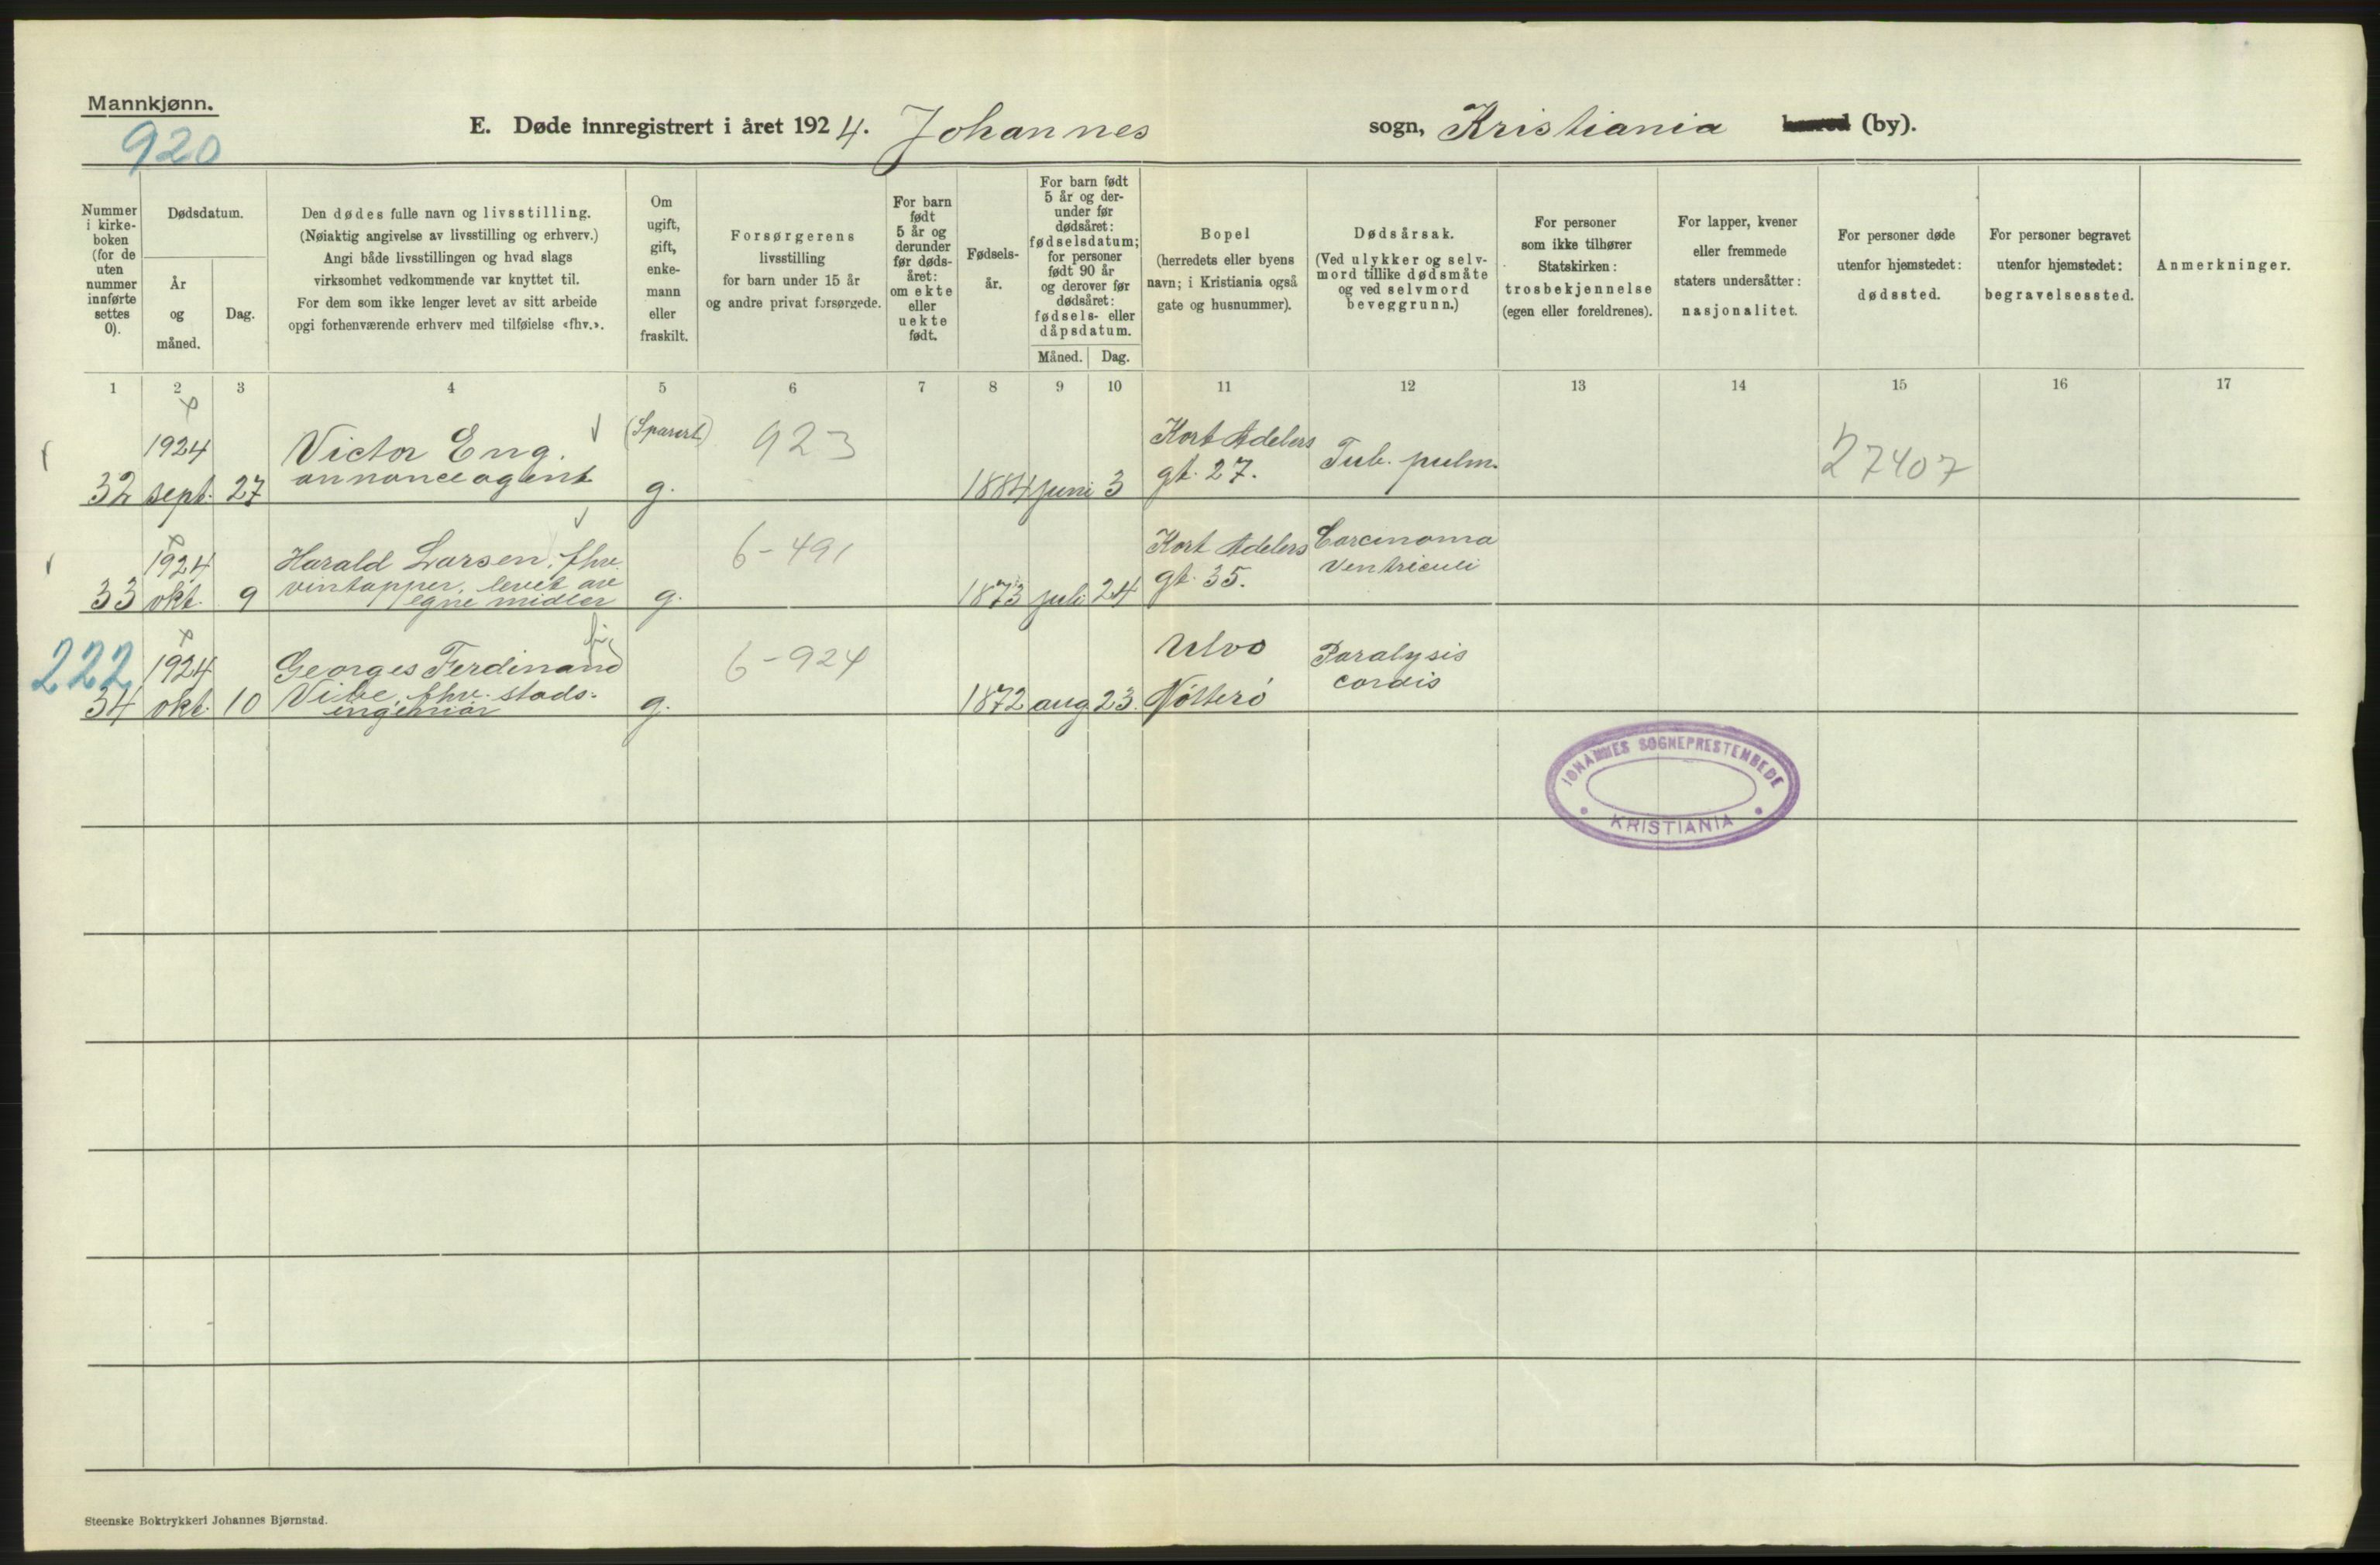 Mannkjønn.
920
E. Døde innregistrert i året 1924. Johannes sogn, Kristiania (by).
Nummer i kirke- boken (for de uten nummer innførte settes 0).
Dødsdatum.
År og måned.
Dag.
Den dødes fulle navn og livsstilling.
(Nøiaktig angivelse av livsstilling og erhverv.)
Angi både livsstillingen og hvad slags
virksomhet vedkommende var knyttet til.
For dem som ikke lenger levet av sitt arbeide
opgi forhenværende erhverv med tilføielse «fhv.».
Om ugift, gift, enke- mann eller fraskilt.
Forsørgerens
livsstilling
for barn under 15 år
og andre privat forsørgede.
For barn født 5 år og derunder før døds- året: om ekte eller uekte født.
Fødsels- år.
For barn født 5 år og der- under før dødsåret: fødselsdatum; for personer født 90 år og derover før dødsåret: fødsels- eller dåpsdatum.
Måned. Dag.
Bopel
(herredets eller byens
navn; i Kristiania også
gate og husnummer).
Dødsårsak.
(Ved ulykker og selv-
mord tillike dødsmåte
og ved selvmord
beveggrunn.)
For personer
som ikke tilhører
Statskirken:
trosbekjennelse
(egen eller foreldrenes).
For lapper, kvener
eller fremmede
staters undersåtter:
nasjonalitet.
For personer døde
utenfor hjemstedet:
dødssted.
For personer begravet
utenfor hjemstedet:
begravelsessted.
Anmerkninger.
1 2 3 4 5 6 7 8 9 10 11 12 13 14 15 16 17
1924 Victor Eng. 923 Kort Adelers Tub. pulm. 27407
32 sept. 27 annonceagent g. 1884 juni 3 gt. 27.
1924 Harald Larsen, fhv. 6-491 Kort Adelers Carcinoma
vintapper, levet av gt. 35. ventriculi
33 okt. 9 egne midler g. 1873 juli 24
222 1924 Georges Ferdinand 6-924 Ulvø Paralysis
34 okt. 10 Vibe, fhv. stads- g. 1872 aug 23. Nøtterö cordis
ingeniør
JOHANNES SOGNEPRESTEMBEDE
KRISTIANIA
Steenske Boktrykkeri Johannes Bjørnstad.